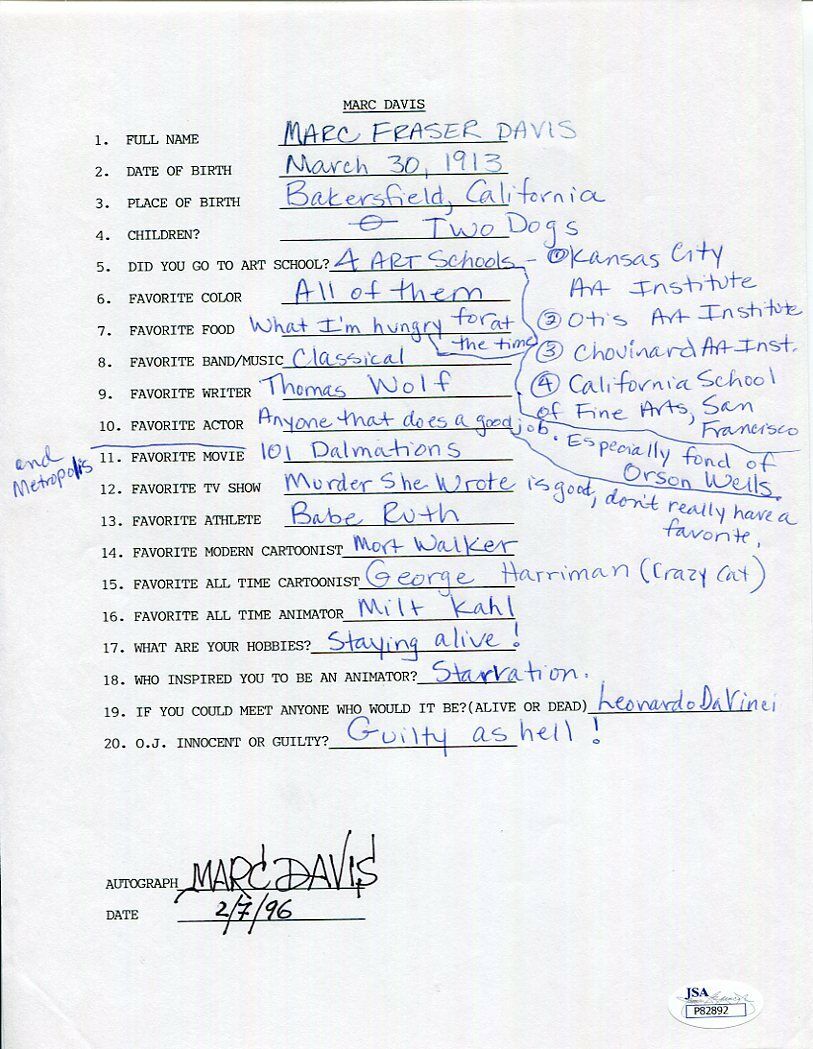 MARC DAVIS
1. FULL NAME MARC FRASER DAVIS
2. DATE OF BIRTH March 30, 1913
3. PLACE OF BIRTH Bakersfield, California
4. CHILDREN? O Two Dogs
5. DID YOU GO TO ART SCHOOL? 4 ART Schools - ① Kansas City
Art Institute
6. FAVORITE COLOR All of them
② Otis Art Institute
7. FAVORITE FOOD What I'm hungry for at
the time
③ Chouinard Art Inst.
8. FAVORITE BAND/MUSIC Classical
④ California School
of Fine Arts, San
Francisco
9. FAVORITE WRITER Thomas Wolf
10. FAVORITE ACTOR Anyone that does a good job. Especially fond of
Orson Wells.
11. FAVORITE MOVIE 101 Dalmations
and
Metropolis
12. FAVORITE TV SHOW Murder She Wrote is good, don't really have a
favorite.
13. FAVORITE ATHLETE Babe Ruth
14. FAVORITE MODERN CARTOONIST Mort Walker
15. FAVORITE ALL TIME CARTOONIST George Harriman (Crazy Cat)
16. FAVORITE ALL TIME ANIMATOR Milt Kahl
17. WHAT ARE YOUR HOBBIES? Staying alive!
18. WHO INSPIRED YOU TO BE AN ANIMATOR? Starvation.
19. IF YOU COULD MEET ANYONE WHO WOULD IT BE?(ALIVE OR DEAD) Leonardo DaVinci
20. O.J. INNOCENT OR GUILTY? Guilty as hell!
AUTOGRAPH MARC DAVIS
DATE 2/7/96
JSA
P82892